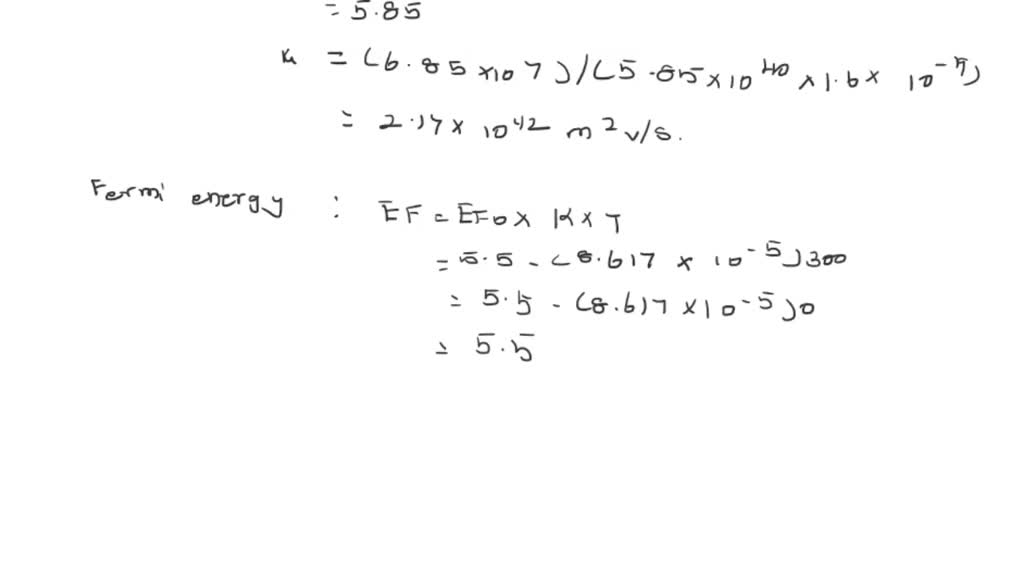 = 5.85
μ = (6.85 × 10 7) / (5.85 × 10^40 × 1.6 × 10^-5)
= 2.17 × 10^42 m^2 v/s.
Fermi energy : EF = EF0 × K × T
= 5.5 - (8.617 × 10^-5) 300
= 5.5 - (8.617 × 10^-5) 0
= 5.5